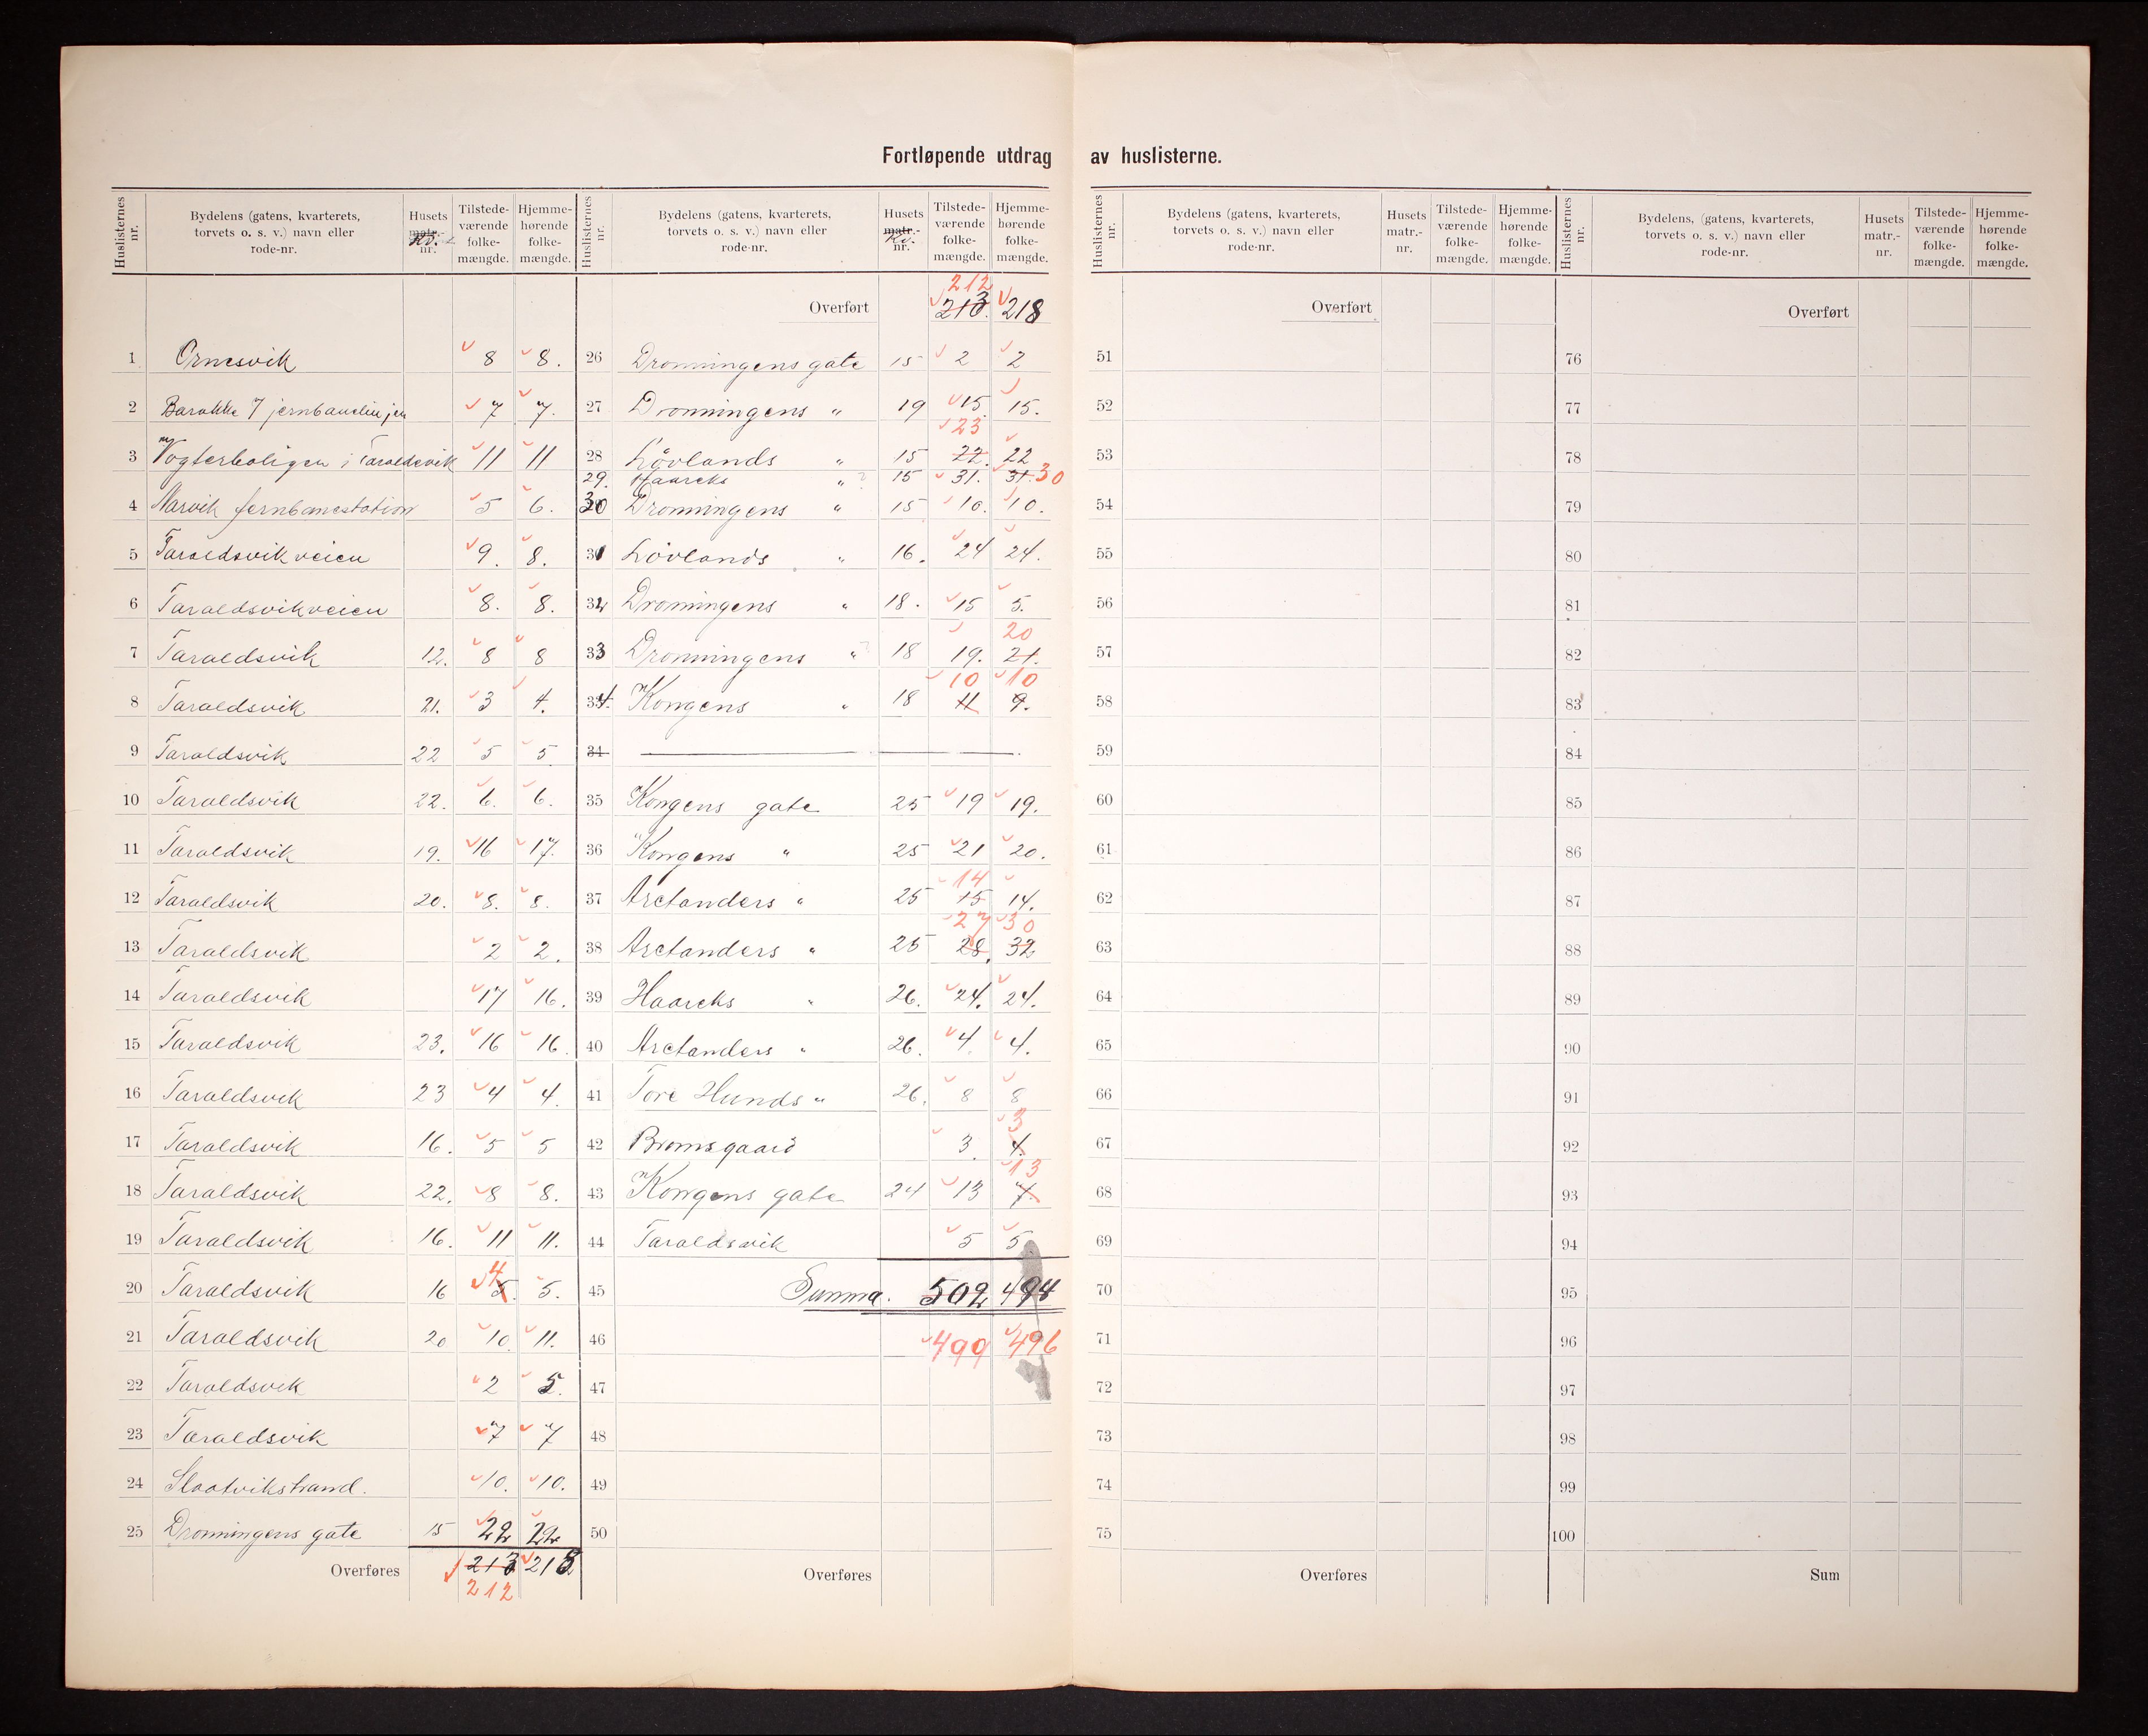 Fortløpende utdrag av huslisterne.
Huslisternes nr. Bydelens (gatens, kvarterets, torvets o. s. v.) navn eller rode-nr. Husets matr.- Kv. nr. Tilstede-værende folke-mængde. Hjemme-hørende folke-mængde.
1 Ornesvik 8 8.
2 Barakke 7 jernbanelinjen 7 7.
3 Vogterboligen i Taraldsvik 11 11
4 Narvik jernbanestation 5 6.
5 Taraldsvikveien 9. 8.
6 Taraldsvikveien 8. 8.
7 Taraldsvik 12. 8 8
8 Taraldsvik 21. 3 4.
9 Taraldsvik 22 5 5.
10 Taraldsvik 22. 6. 6.
11 Taraldsvik 19. 16 17.
12 Taraldsvik 20. 8. 8.
13 Taraldsvik 2 2.
14 Taraldsvik 17 16.
15 Taraldsvik 23. 16 16.
16 Taraldsvik 23 4 4.
17 Taraldsvik 16. 5 5
18 Taraldsvik 22. 8 8.
19 Taraldsvik 16. 11 11.
20 Taraldsvik 16 5. 4 5.
21 Taraldsvik 20 10. 11.
22 Taraldsvik 2 5.
23 Taraldsvik 7 7
24 Slaatvikstrand. 10. 10.
25 Dronningens gate 15 22 22
Overføres 213 218
212
Huslisternes nr. Bydelens (gatens, kvarterets, torvets o. s. v.) navn eller rode-nr. Husets matr.- Kv. nr. Tilstede-værende folke-mængde. Hjemme-hørende folke-mængde.
212
Overført 213. 218
26 Dronningens gate 15 2 2
27 Dronningens " 19 15. 15.
23
28 Lövlands " 15 22. 22
29. Haareks " 15 31. 31. 30
30 Dronningens " 15 10. 10.
31 Lövlands " 16. 24 24.
32 Dronningens " 18. 15 5.
20
33 Dronningens " 18 19. 21.
10 10
34. Kongens " 18 11 9.
34
35 Kongens gate 25 19 19.
36 Kongens " 25 21 20.
14
37 Arctanders " 25 15 14.
27 30
38 Arctanders " 25 28. 32
39 Haareks " 26. 24. 24.
40 Arctanders " 26. 4. 4.
41 Tore Hunds " 26. 8 8
3
42 Bromsgaard 3. 4.
13
43 Kongens gate 24 13 7.
44 Taraldsvik 5 5.
45 Summa. 502 494
46 499 496
47
48
49
50
Overføres
Huslisternes nr. Bydelens (gatens, kvarterets, torvets o. s. v.) navn eller rode-nr. Husets matr.-nr. Tilstede-værende folke-mængde. Hjemme-hørende folke-mængde.
Overført
51
52
53
54
55
56
57
58
59
60
61
62
63
64
65
66
67
68
69
70
71
72
73
74
75
Overføres
Huslisternes nr. Bydelens, (gatens, kvarterets, torvets o. s. v.) navn eller rode-nr. Husets matr.-nr. Tilstede-værende folke-mængde. Hjemme-hørende folke-mængde.
Overført
76
77
78
79
80
81
82
83
84
85
86
87
88
89
90
91
92
93
94
95
96
97
98
99
100
Sum